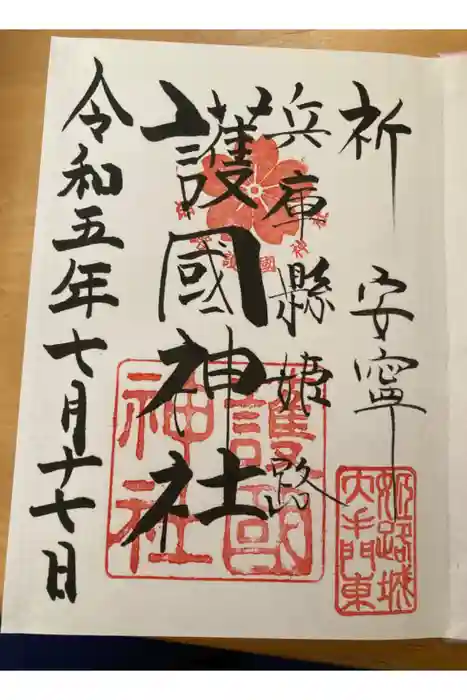 祈 安寧
兵庫縣姫路
護國神社
令和五年七月十七日
護國
神社
姫路城
大手門東